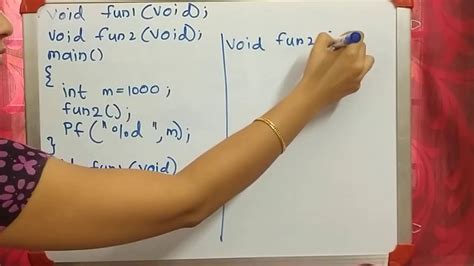 void fun1(void);
void fun2(void);
main()
{
int m=1000;
fun2();
Pf("%d", m);
}
fun1(void)
void fun2